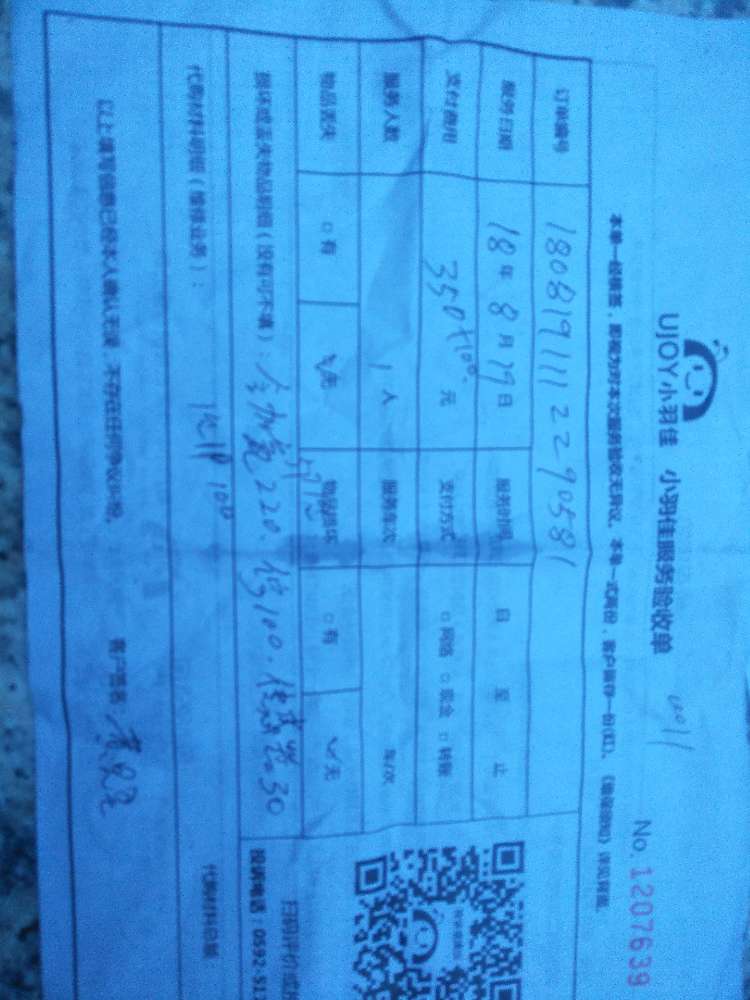 UJOY小羽佳 小羽佳服务验收单
No.1207639
本单一经签, 即视为对本次服务验收无异议。本单一式两份, 客户留存一份(红)。
订单编号 1808191112290581
服务日期 18年8月19日 服务时间 日 至 止
支付费用 350+100 元 支付方式 □网络 □现金 □转账
服务人数 1人 服务车次 车/次
物品丢失 □有 ✓无 物品损坏 □有 ✓无
损坏或丢失物品明细(没有可不填): 220. 100. 30
代购材料明细(维修业务): 100
代购材料总额
以上填写信息已经本人确认无误, 不存在任何争议纠纷。 客户签名:
扫码评价
投诉电话:0592-51